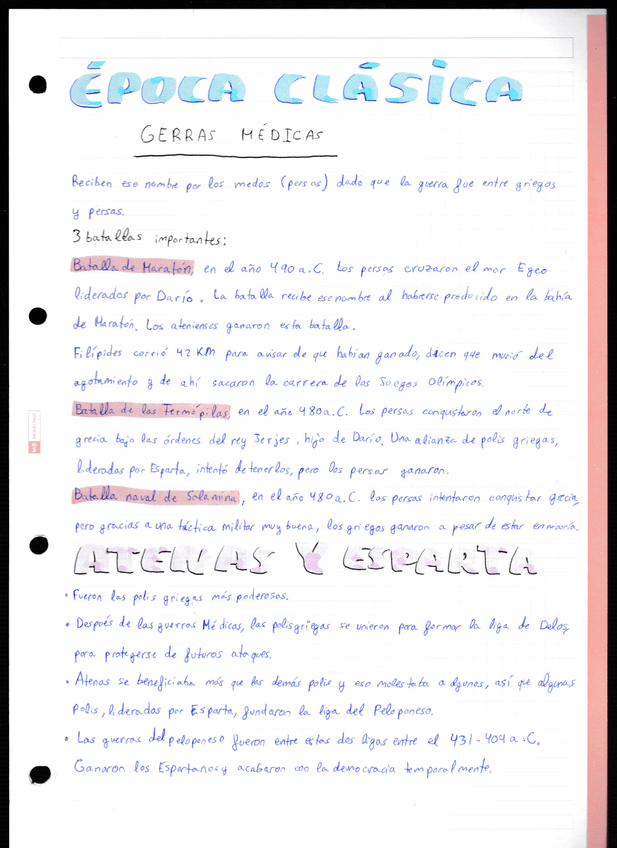 ÉPOCA CLÁSICA
GERRAS MÉDICAS
Reciben ese nombre por los medos (persas) dado que la guerra fue entre griegos
y persas.
3 batallas importantes:
Batalla de Maratón, en el año 490 a.C. Los persas cruzaron el mar Egeo
liderados por Darío. La batalla recibe ese nombre al haberse producido en la bahía
de Maratón. Los atenienses ganaron esta batalla.
Filípides corrió 42 KM para avisar de que habían ganado, dicen que murió del
agotamiento y de ahí sacaron la carrera de los Juegos Olímpicos.
Batalla de las Termópilas, en el año 480 a.C. Los persas conquistaron el norte de
grecia bajo las órdenes del rey Jerjes, hijo de Darío. Una alianza de polis griegas,
lideradas por Esparta, intentó detenerlos, pero los persas ganaron.
Batalla naval de Salamina, en el año 480 a.C. los persas intentaron conquistar grecia,
pero gracias a una táctica militar muy buena, los griegos ganaron a pesar de estar en minoría.
ATENAS Y ESPARTA
• Fueron las polis griegas más poderosas.
• Después de las guerras Médicas, las polis griegas se unieron para formar la liga de Delos,
para protegerse de futuros ataques.
• Atenas se beneficiaba más que las demás polis y eso molestaba a algunas, así que algunas
Polis, lideradas por Esparta, fundaron la liga del Peloponeso.
• Las guerras del peloponeso fueron entre estas dos ligas entre el 431-404 a.C.
Ganaron los Espartanos y acabaron con la democracia temporalmente.